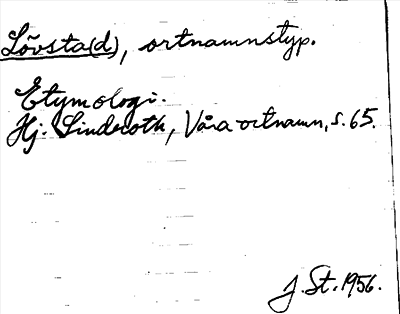 Lövsta(d), ortnamnstyp.
Etymologi.
Hj. Linderoth, Våra ortnamn, s. 65.
J. St. 1956.